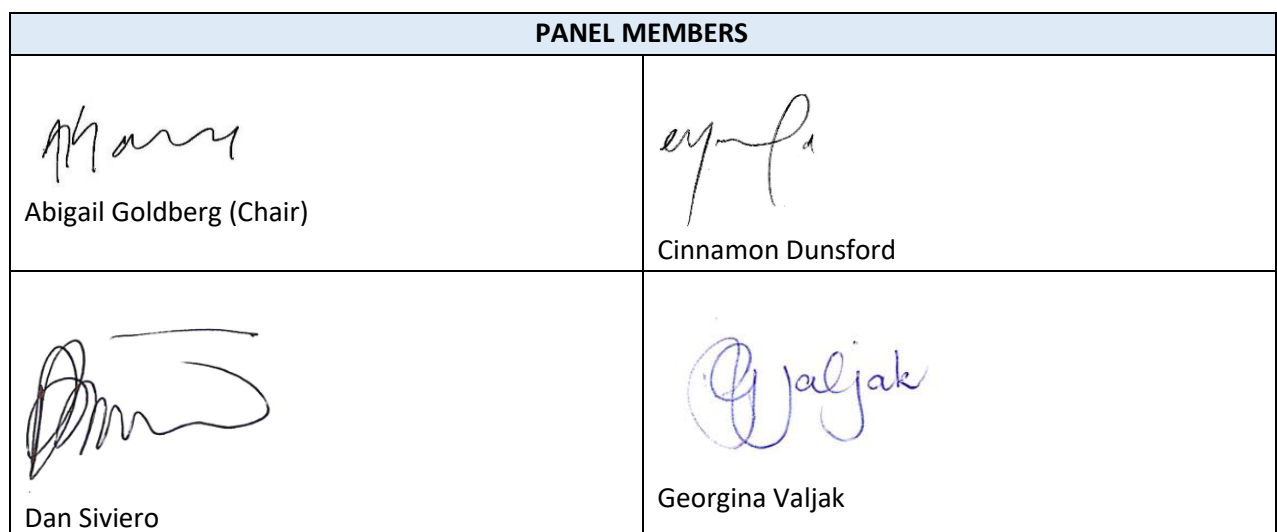 PANEL MEMBERS
Abigail Goldberg (Chair)
Cinnamon Dunsford
Valjak
Dan Siviero
Georgina Valjak